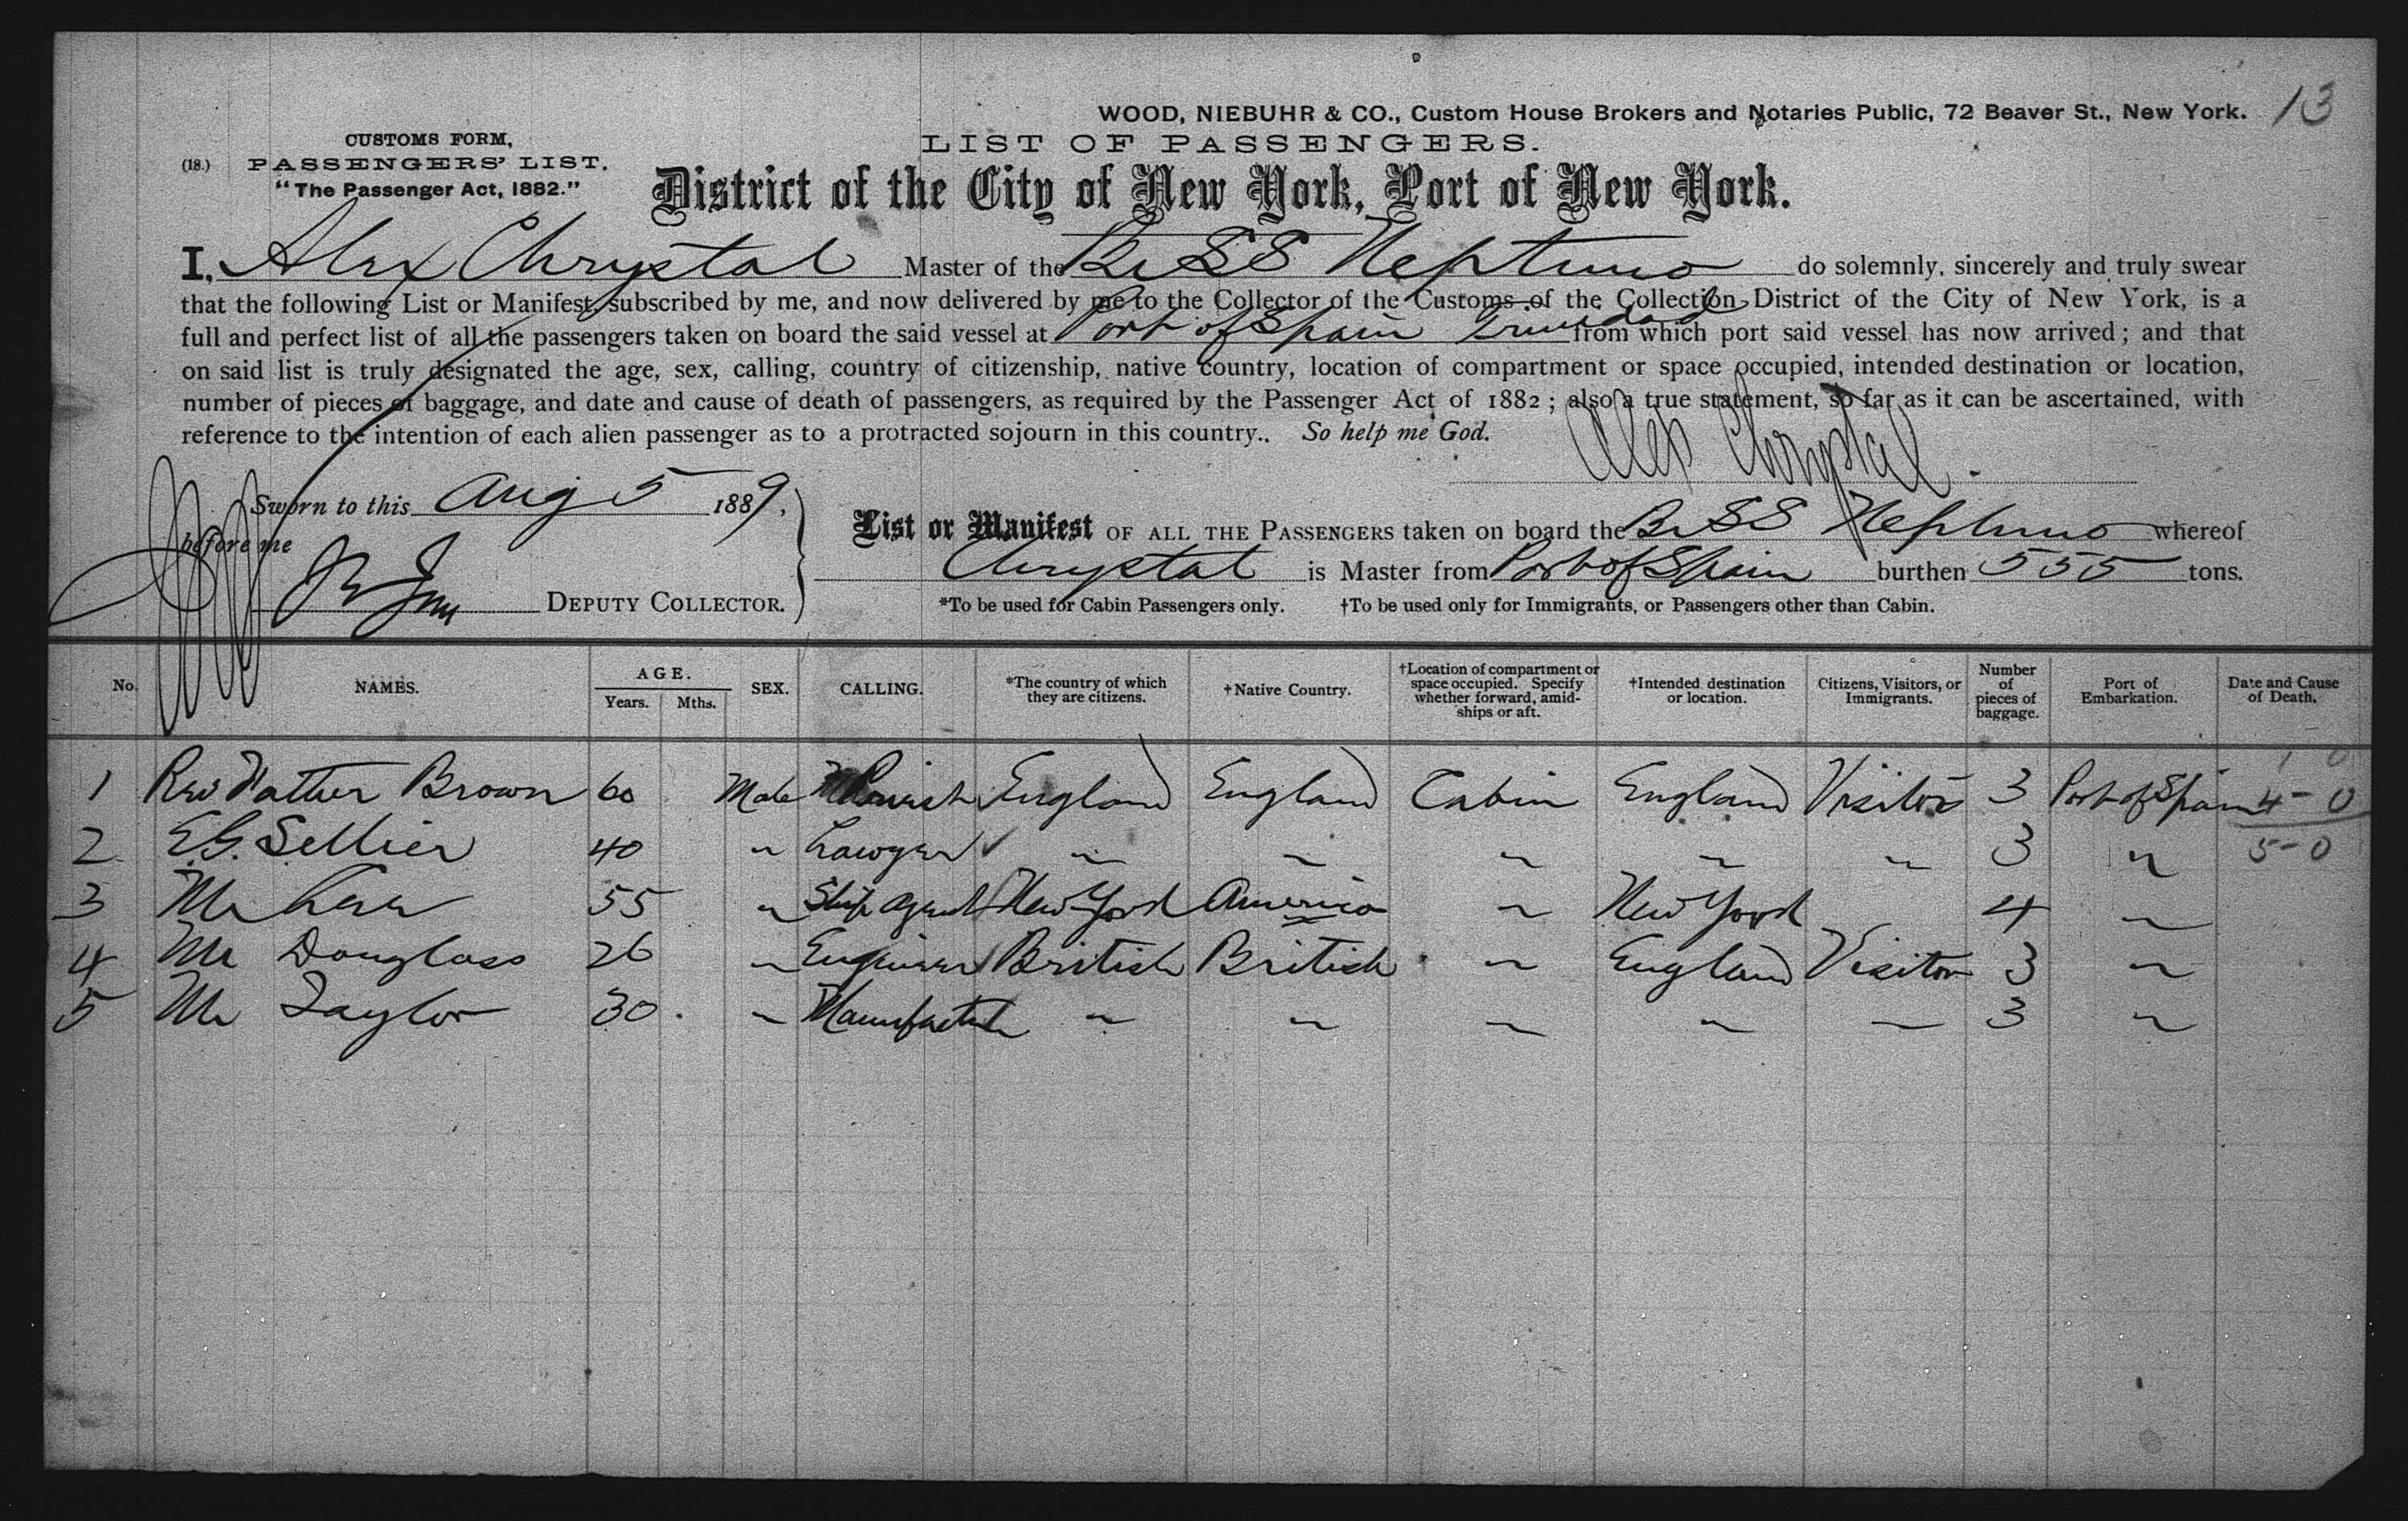 WOOD, NIEBUHR & CO., Custom House Brokers and Notaries Public, 72 Beaver St., New York. 13
CUSTOMS FORM,
(18.) PASSENGERS' LIST.
"The Passenger Act, 1882."
LIST OF PASSENGERS.
District of the City of New York, Port of New York.
I, Alex Chrystal Master of the Br SS Neptuno do solemnly, sincerely and truly swear
that the following List or Manifest, subscribed by me, and now delivered by me to the Collector of the Customs of the Collection District of the City of New York, is a
full and perfect list of all the passengers taken on board the said vessel at Port of Spain Trinidad from which port said vessel has now arrived; and that
on said list is truly designated the age, sex, calling, country of citizenship, native country, location of compartment or space occupied, intended destination or location,
number of pieces of baggage, and date and cause of death of passengers, as required by the Passenger Act of 1882; also a true statement, so far as it can be ascertained, with
reference to the intention of each alien passenger as to a protracted sojourn in this country.. So help me God.
Alex Chrystal.
Sworn to this Aug 5 1889,
before me
DEPUTY COLLECTOR.
List or Manifest OF ALL THE PASSENGERS taken on board the Br SS Neptuno whereof
Chrystal is Master from Port of Spain burthen 555 tons.
*To be used for Cabin Passengers only. †To be used only for Immigrants, or Passengers other than Cabin.
No. NAMES. AGE. Years. Mths. SEX. CALLING. *The country of which they are citizens. †Native Country. †Location of compartment or space occupied. Specify whether forward, amidships or aft. †Intended destination or location. Citizens, Visitors, or Immigrants. Number of pieces of baggage. Port of Embarkation. Date and Cause of Death.
1 Rev Father Brown 60 Male Priest England England Cabin England Visitor 3 Port of Spain 1 0
4-0
2 E.G. Sellier 40 " Lawyer " " " " " 3 " 5-0
3 Mr Kerr 55 " Ship agent New York America " New York 4 "
4 Mr Douglass 26 " Engineer British British " England Visitor 3 "
5 Mr Taylor 30 " " " " " " 3 "